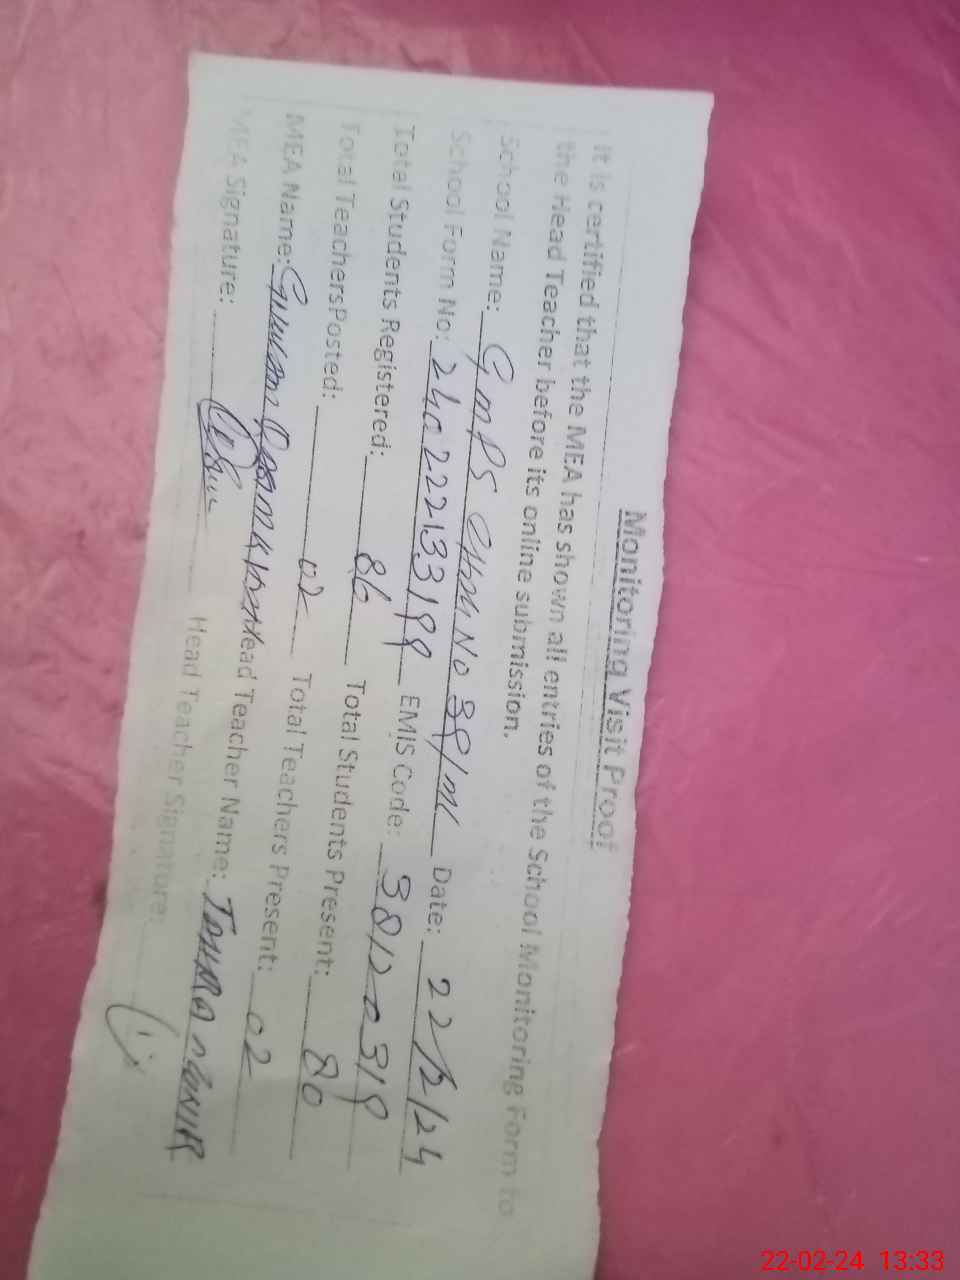 Monitoring Visit Proof
It is certified that the MEA has shown all entries of the School Monitoring Form to
the Head Teacher before its online submission.
School Name: GMPS CHAK NO 38/ML Date: 22/2/24
School Form No: 240222133199 EMIS Code: 38120319
Total Students Registered: 86 Total Students Present: 80
Total Teachers Posted: 02 Total Teachers Present: 02
MEA Name: Head Teacher Name: TAHIRA MUNIR
MEA Signature: Head Teacher Signature:
22-02-24 13:33